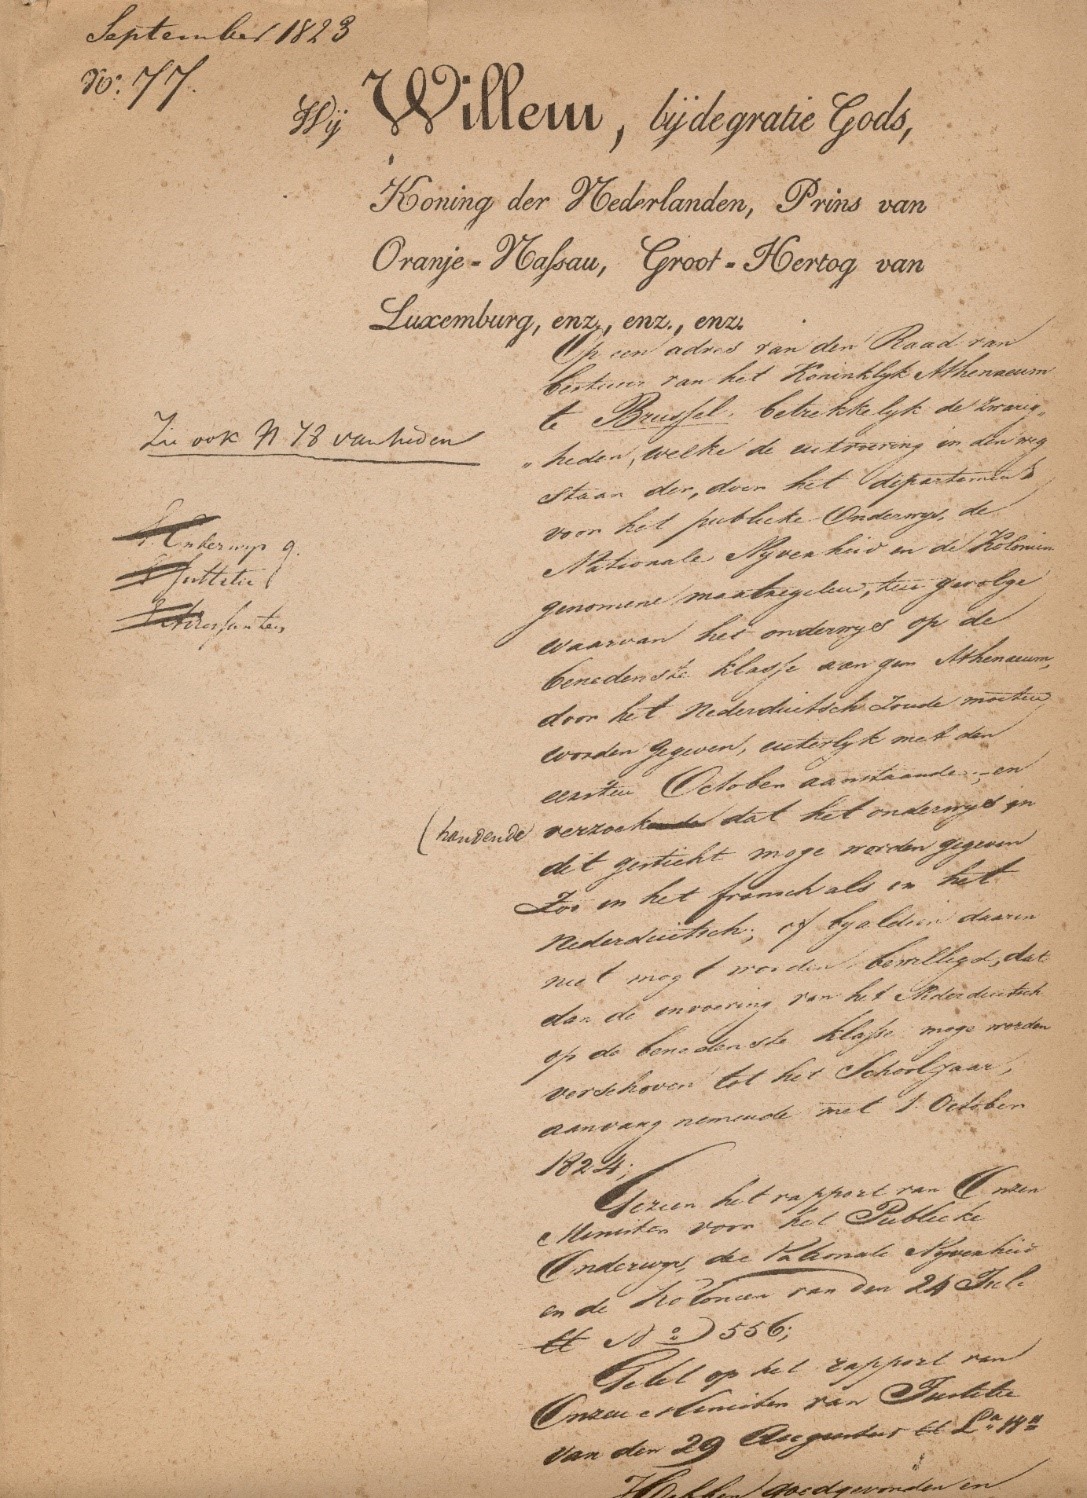 September 1823
No. 77.
Wij Willem, bij de gratie Gods,
Koning der Nederlanden, Prins van
Oranje-Nassau, Groot-Hertog van
Luxemburg, enz., enz., enz.
Op een adres van den Raad van
bestuur van het Koninklyk Athenaeum
te Brussel, betrekkelyk de zwarig-
Zie ook N 78 van heden
"heden, welke de uitvoering in den weg
staan der, door het departement
voor het publieke Onderwys, de
Nationale Nyverheid en de Kolonien
Onderwys g.
Justitie
Adressanten
genomene maatregelen, ten gevolge
waarvan het onderwys op de
benedenste klasse aan gem Athenaeum,
door het Nederduitsch zoude moeten
worden gegeven, uiterlyk met den
eersten October aanstaande, en
(houdende verzoekende dat het onderwys in
dit gesticht moge worden gegeven
Zoo in het fransch als in het
Nederduitsch; of byaldien daarin
niet mogt worden bewilligd, dat
dan de invoering van het Nederduitsch
op de benedenste klasse moge worden
verschoven tot het Schooljaar,
aanvang nemende met 1 October
1824;
Gezien het rapport van Onzen
Minister voor het Publieke
Onderwys, de Nationale Nyverheid
en de Kolonien van den 24 Juli
ll No 556;
Gelet op het rapport van
Onzen Minister van Justitie
van den 29 Augustus ll La H
Hebben goedgevonden en